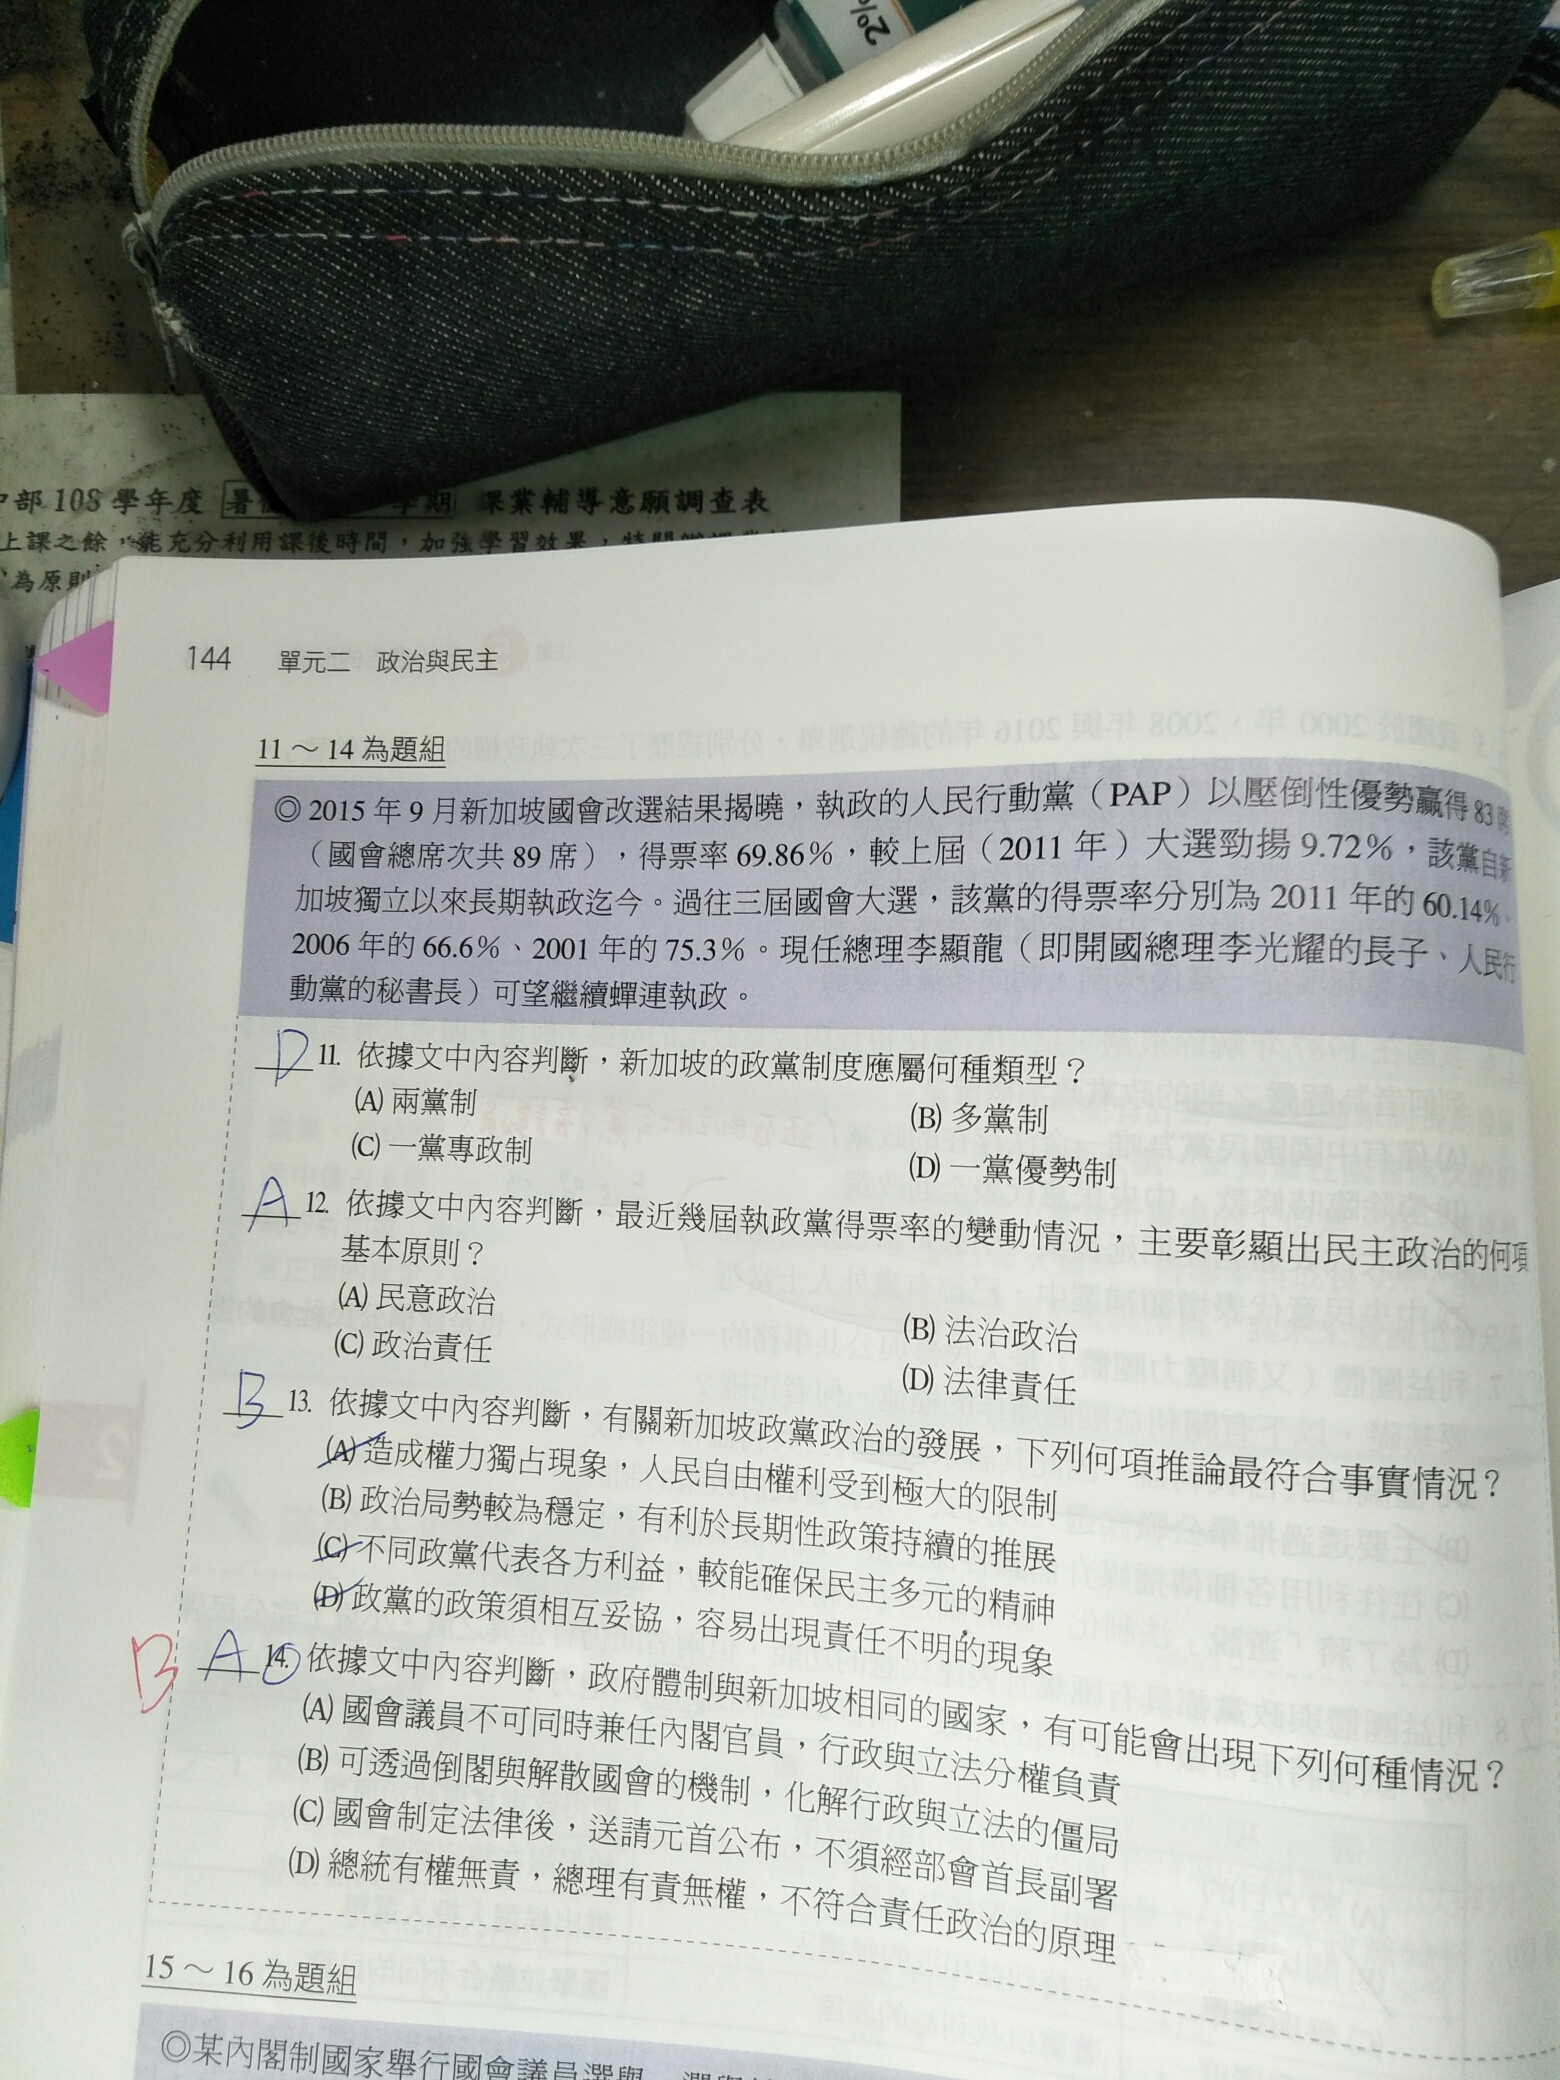 2%
中部 108 學年度 暑 學期 課業輔導意願調查表
上課之餘，能充分利用課後時間，加強學習效果，
為原則
144 單元二 政治與民主
11～14 為題組
◎ 2015 年 9 月新加坡國會改選結果揭曉，執政的人民行動黨（PAP）以壓倒性優勢贏得 83 席
（國會總席次共 89 席），得票率 69.86％，較上屆（2011 年）大選勁揚 9.72％，該黨自新
加坡獨立以來長期執政迄今。過往三屆國會大選，該黨的得票率分別為 2011 年的 60.14％、
2006 年的 66.6％、2001 年的 75.3％。現任總理李顯龍（即開國總理李光耀的長子、人民行
動黨的秘書長）可望繼續蟬連執政。
D 11. 依據文中內容判斷，新加坡的政黨制度應屬何種類型？
(A) 兩黨制 (B) 多黨制
(C) 一黨專政制 (D) 一黨優勢制
A 12. 依據文中內容判斷，最近幾屆執政黨得票率的變動情況，主要彰顯出民主政治的何項
基本原則？
(A) 民意政治 (B) 法治政治
(C) 政治責任 (D) 法律責任
B 13. 依據文中內容判斷，有關新加坡政黨政治的發展，下列何項推論最符合事實情況？
(A) 造成權力獨占現象，人民自由權利受到極大的限制
(B) 政治局勢較為穩定，有利於長期性政策持續的推展
(C) 不同政黨代表各方利益，較能確保民主多元的精神
(D) 政黨的政策須相互妥協，容易出現責任不明的現象
B A 14. 依據文中內容判斷，政府體制與新加坡相同的國家，有可能會出現下列何種情況？
(A) 國會議員不可同時兼任內閣官員，行政與立法分權負責
(B) 可透過倒閣與解散國會的機制，化解行政與立法的僵局
(C) 國會制定法律後，送請元首公布，不須經部會首長副署
(D) 總統有權無責，總理有責無權，不符合責任政治的原理
15～16 為題組
◎某內閣制國家舉行國會議員選舉